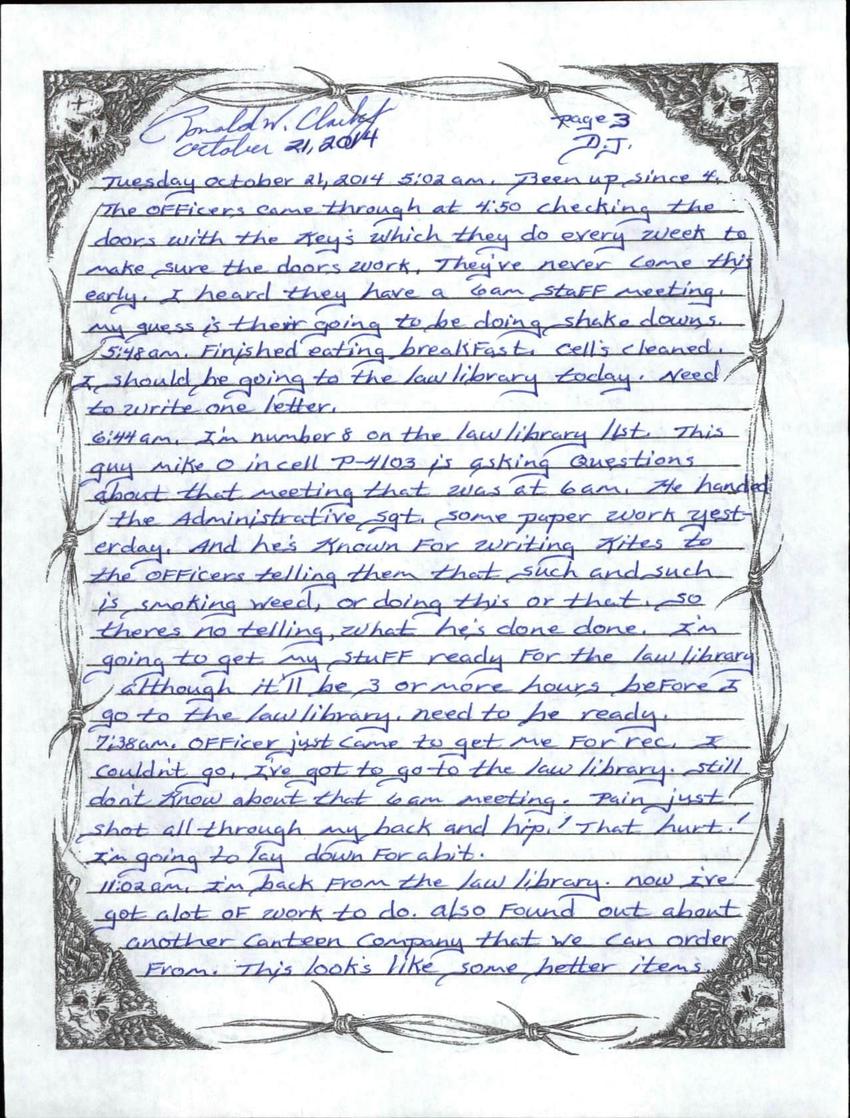 Ronald W. Clark Jr
October 21, 2014
page 3
D.J.
Tuesday October 21, 2014 5:02 am. Been up since 4.
The officers came through at 4:50 checking the
doors with the key's which they do every week to
make sure the doors work. They've never come this
early. I heard they have a 6am staff meeting.
my guess is their going to be doing shake downs.
5:48am. Finished eating breakfast. Cell's cleaned.
I should be going to the law library today. Need
to write one letter.
6:44 am. I'm number 8 on the law library list. This
guy mike O in cell P-4103 is asking Questions
about that meeting that was at 6am. He handed
the Administrative sgt. some paper work yest-
erday. And he's known for writing kites to
the officers telling them that such and such
is smoking weed, or doing this or that. So
theres no telling, what he's done done. I'm
going to get my stuff ready for the law library
although it'll be 3 or more hours before I
go to the law library. need to be ready.
7:38am. Officer just came to get me for rec. I
couldn't go. I've got to go to the law library. still
don't know about that 6am meeting. Pain just
shot all through my back and hip! That hurt!
I'm going to lay down for abit.
11:02am. I'm back from the law library. now I've
got alot of work to do. also found out about
another Canteen Company that we can order
from. This look's like some better items